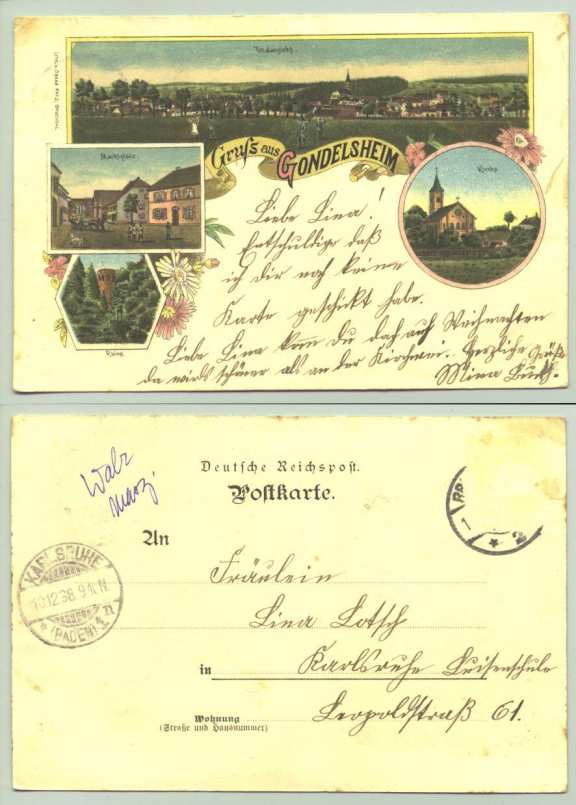 Totalansicht.
Marktplatz
Gruß aus
GONDELSHEIM
Kirche
Ruine
Liebe Lina!
Entschuldige daß
ich dir noch keine
Karte geschickt habe.
Liebe Lina kom Du doch auf Weihnachten
da wirds schöner als an der Kirchwei. Herzliche Grüße
Mina
Walz
Deutsche Reichspost.
Postkarte.
An
KARLSRUHE
10.12.98.9-10.N.
(BADEN)
Fräulein
Lina Lotsch
in Karlsruhe Luisenschule
Leopoldstraß 61.
Wohnung
(Straße und Hausnummer)